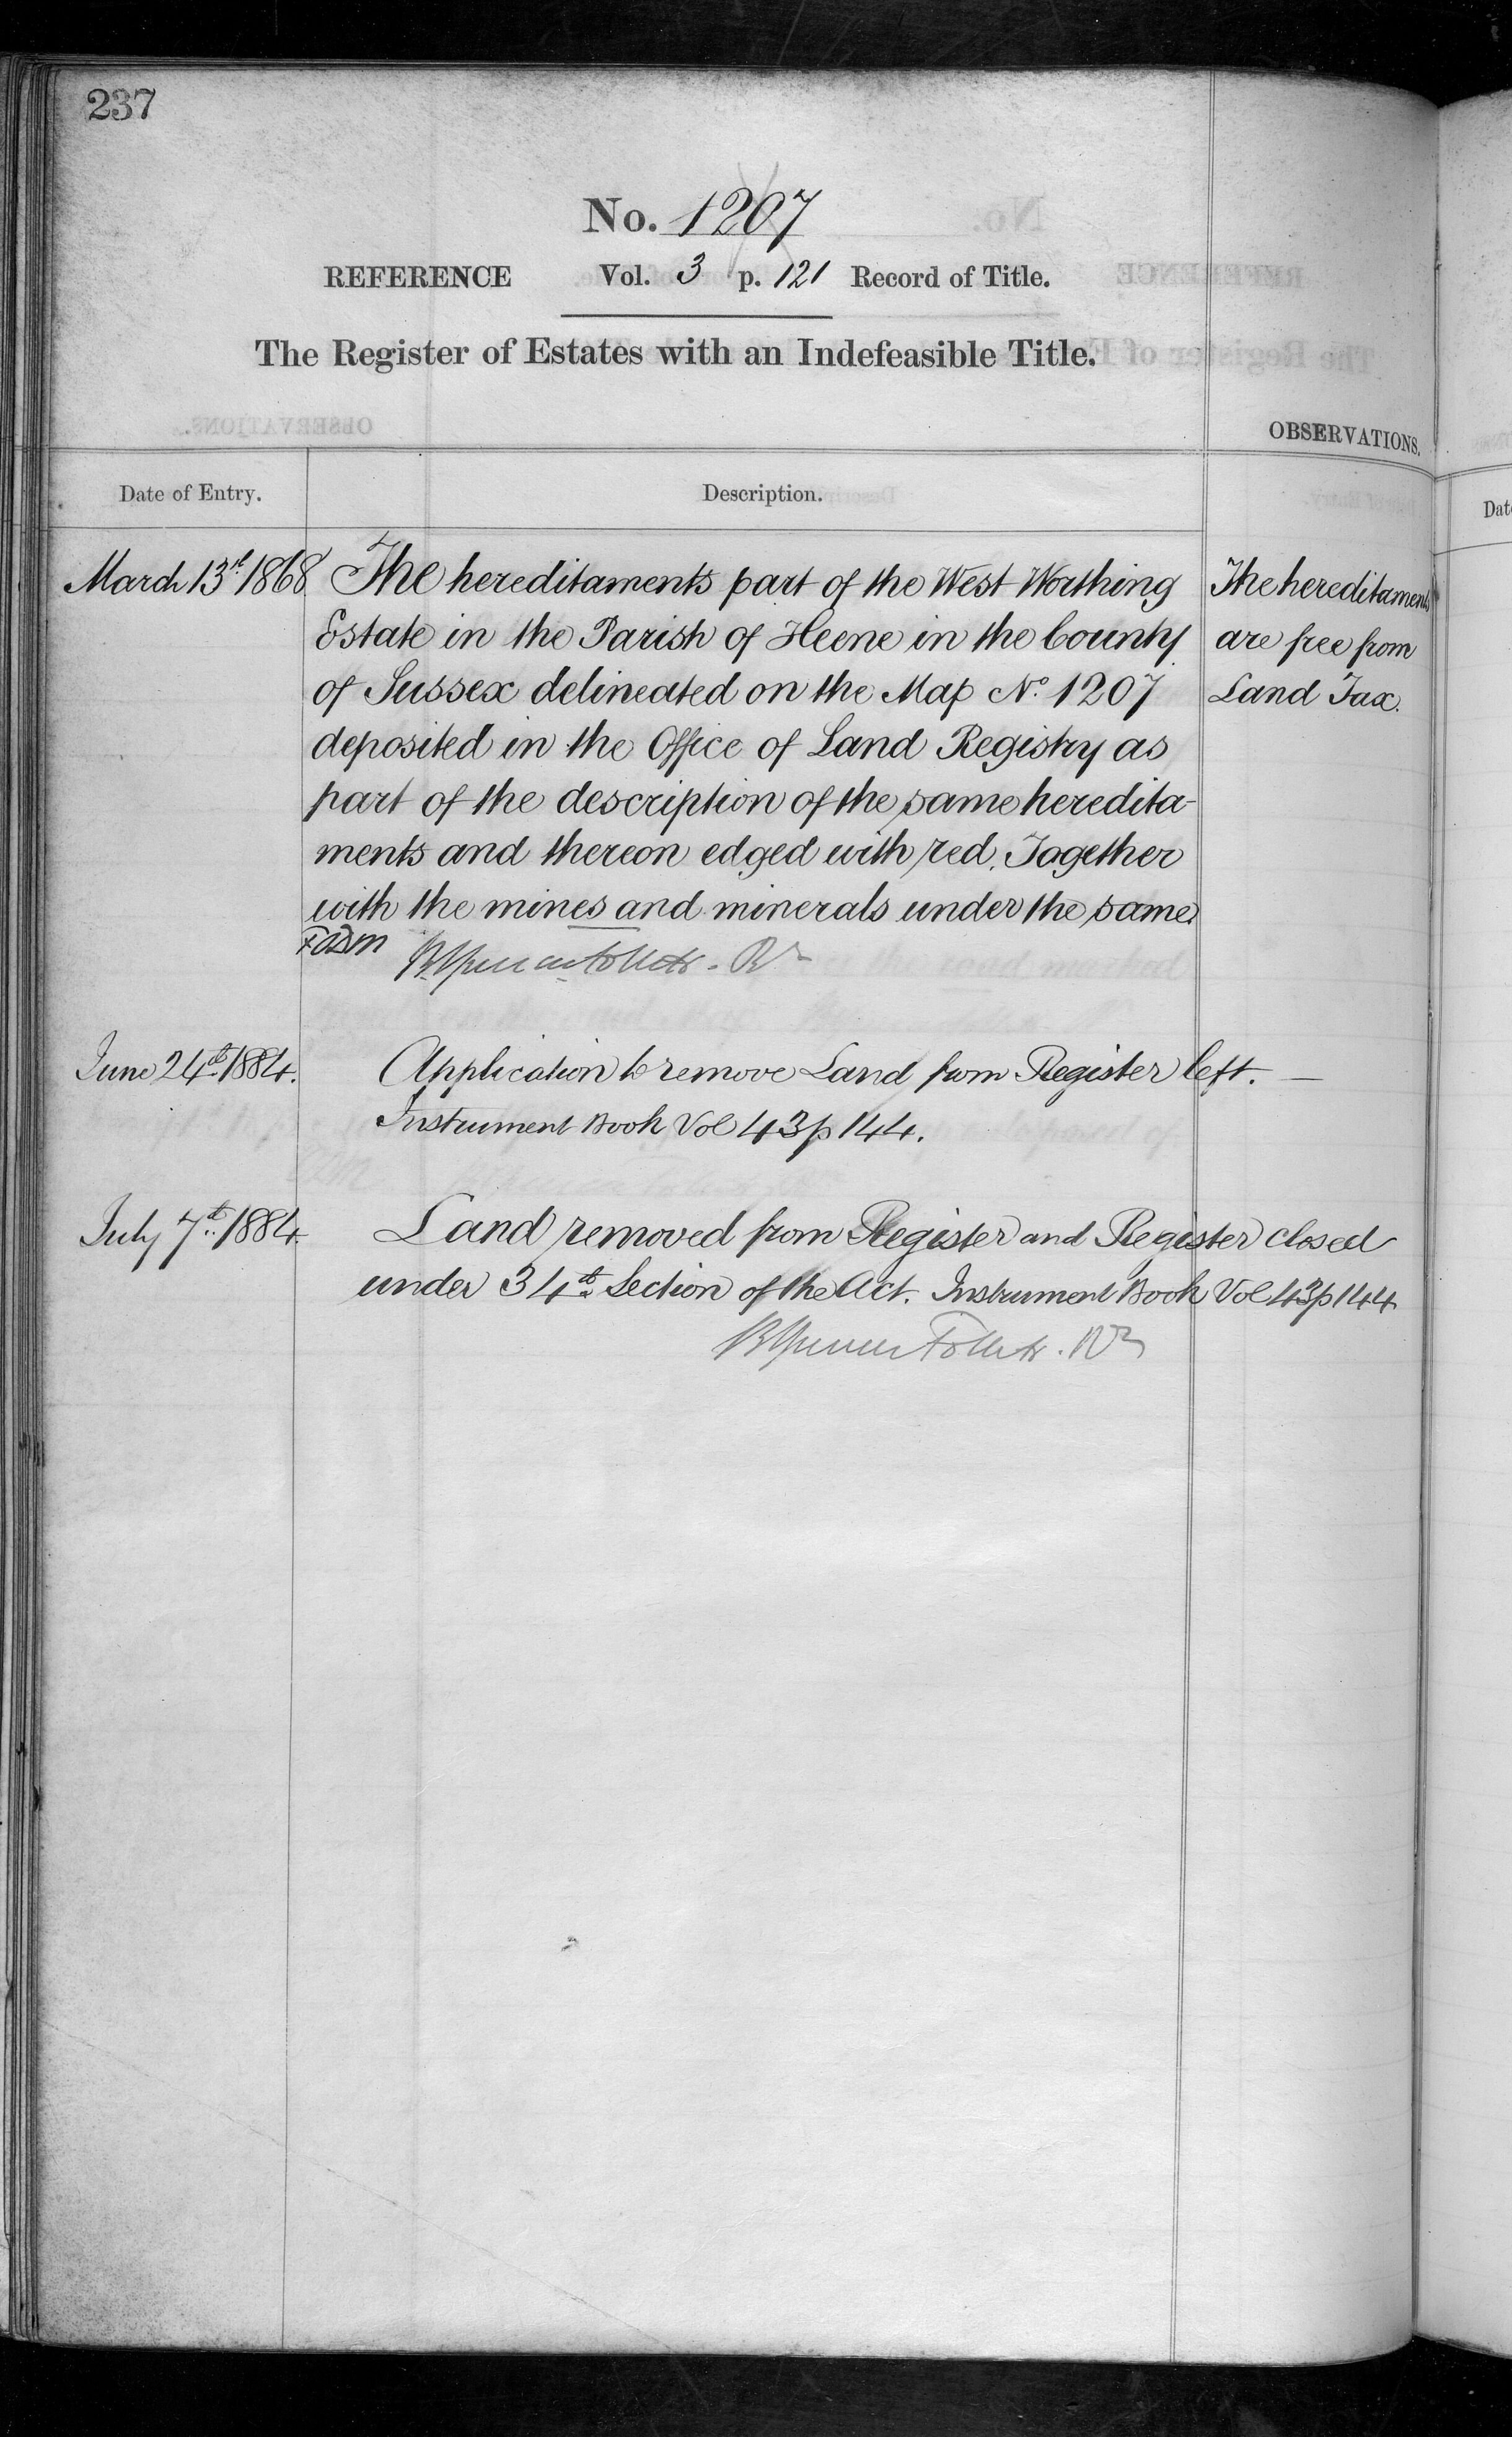 237
No. 1207
REFERENCE Vol. 3 p. 121 Record of Title.
The Register of Estates with an Indefeasible Title.
OBSERVATIONS.
Date of Entry. Description.
March 13th 1868 The hereditaments part of the West Worthing
Estate in the Parish of Heene in the County
of Sussex delineated on the Map No. 1207
deposited in the Office of Land Registry as
part of the description of the same heredita-
ments and thereon edged with red. Together
with the mines and minerals under the same.
The hereditaments
are free from
Land Tax.
Follett
June 24th 1884. Application to remove Land from Register left. —
Instrument Book Vol 43 p 144.
July 7th 1884. Land removed from Register and Register closed
under 34th Section of the Act. Instrument Book Vol 43 p 144
Follett